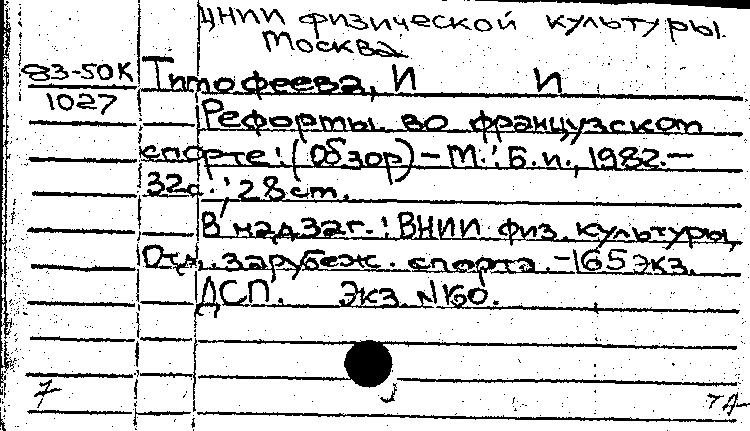 ЦНИИ физической культуры.
Москва
83-50К Тимофеева, И И
1027
Реформы во французском
спорте: (Обзор) - М.: Б.и., 1982. -
32с.; 28 ст.
В надзаг.: ВНИИ физ. культуры,
Отд. зарубеж. спорта. - 165 экз.
ДСП. Экз. N160.
7